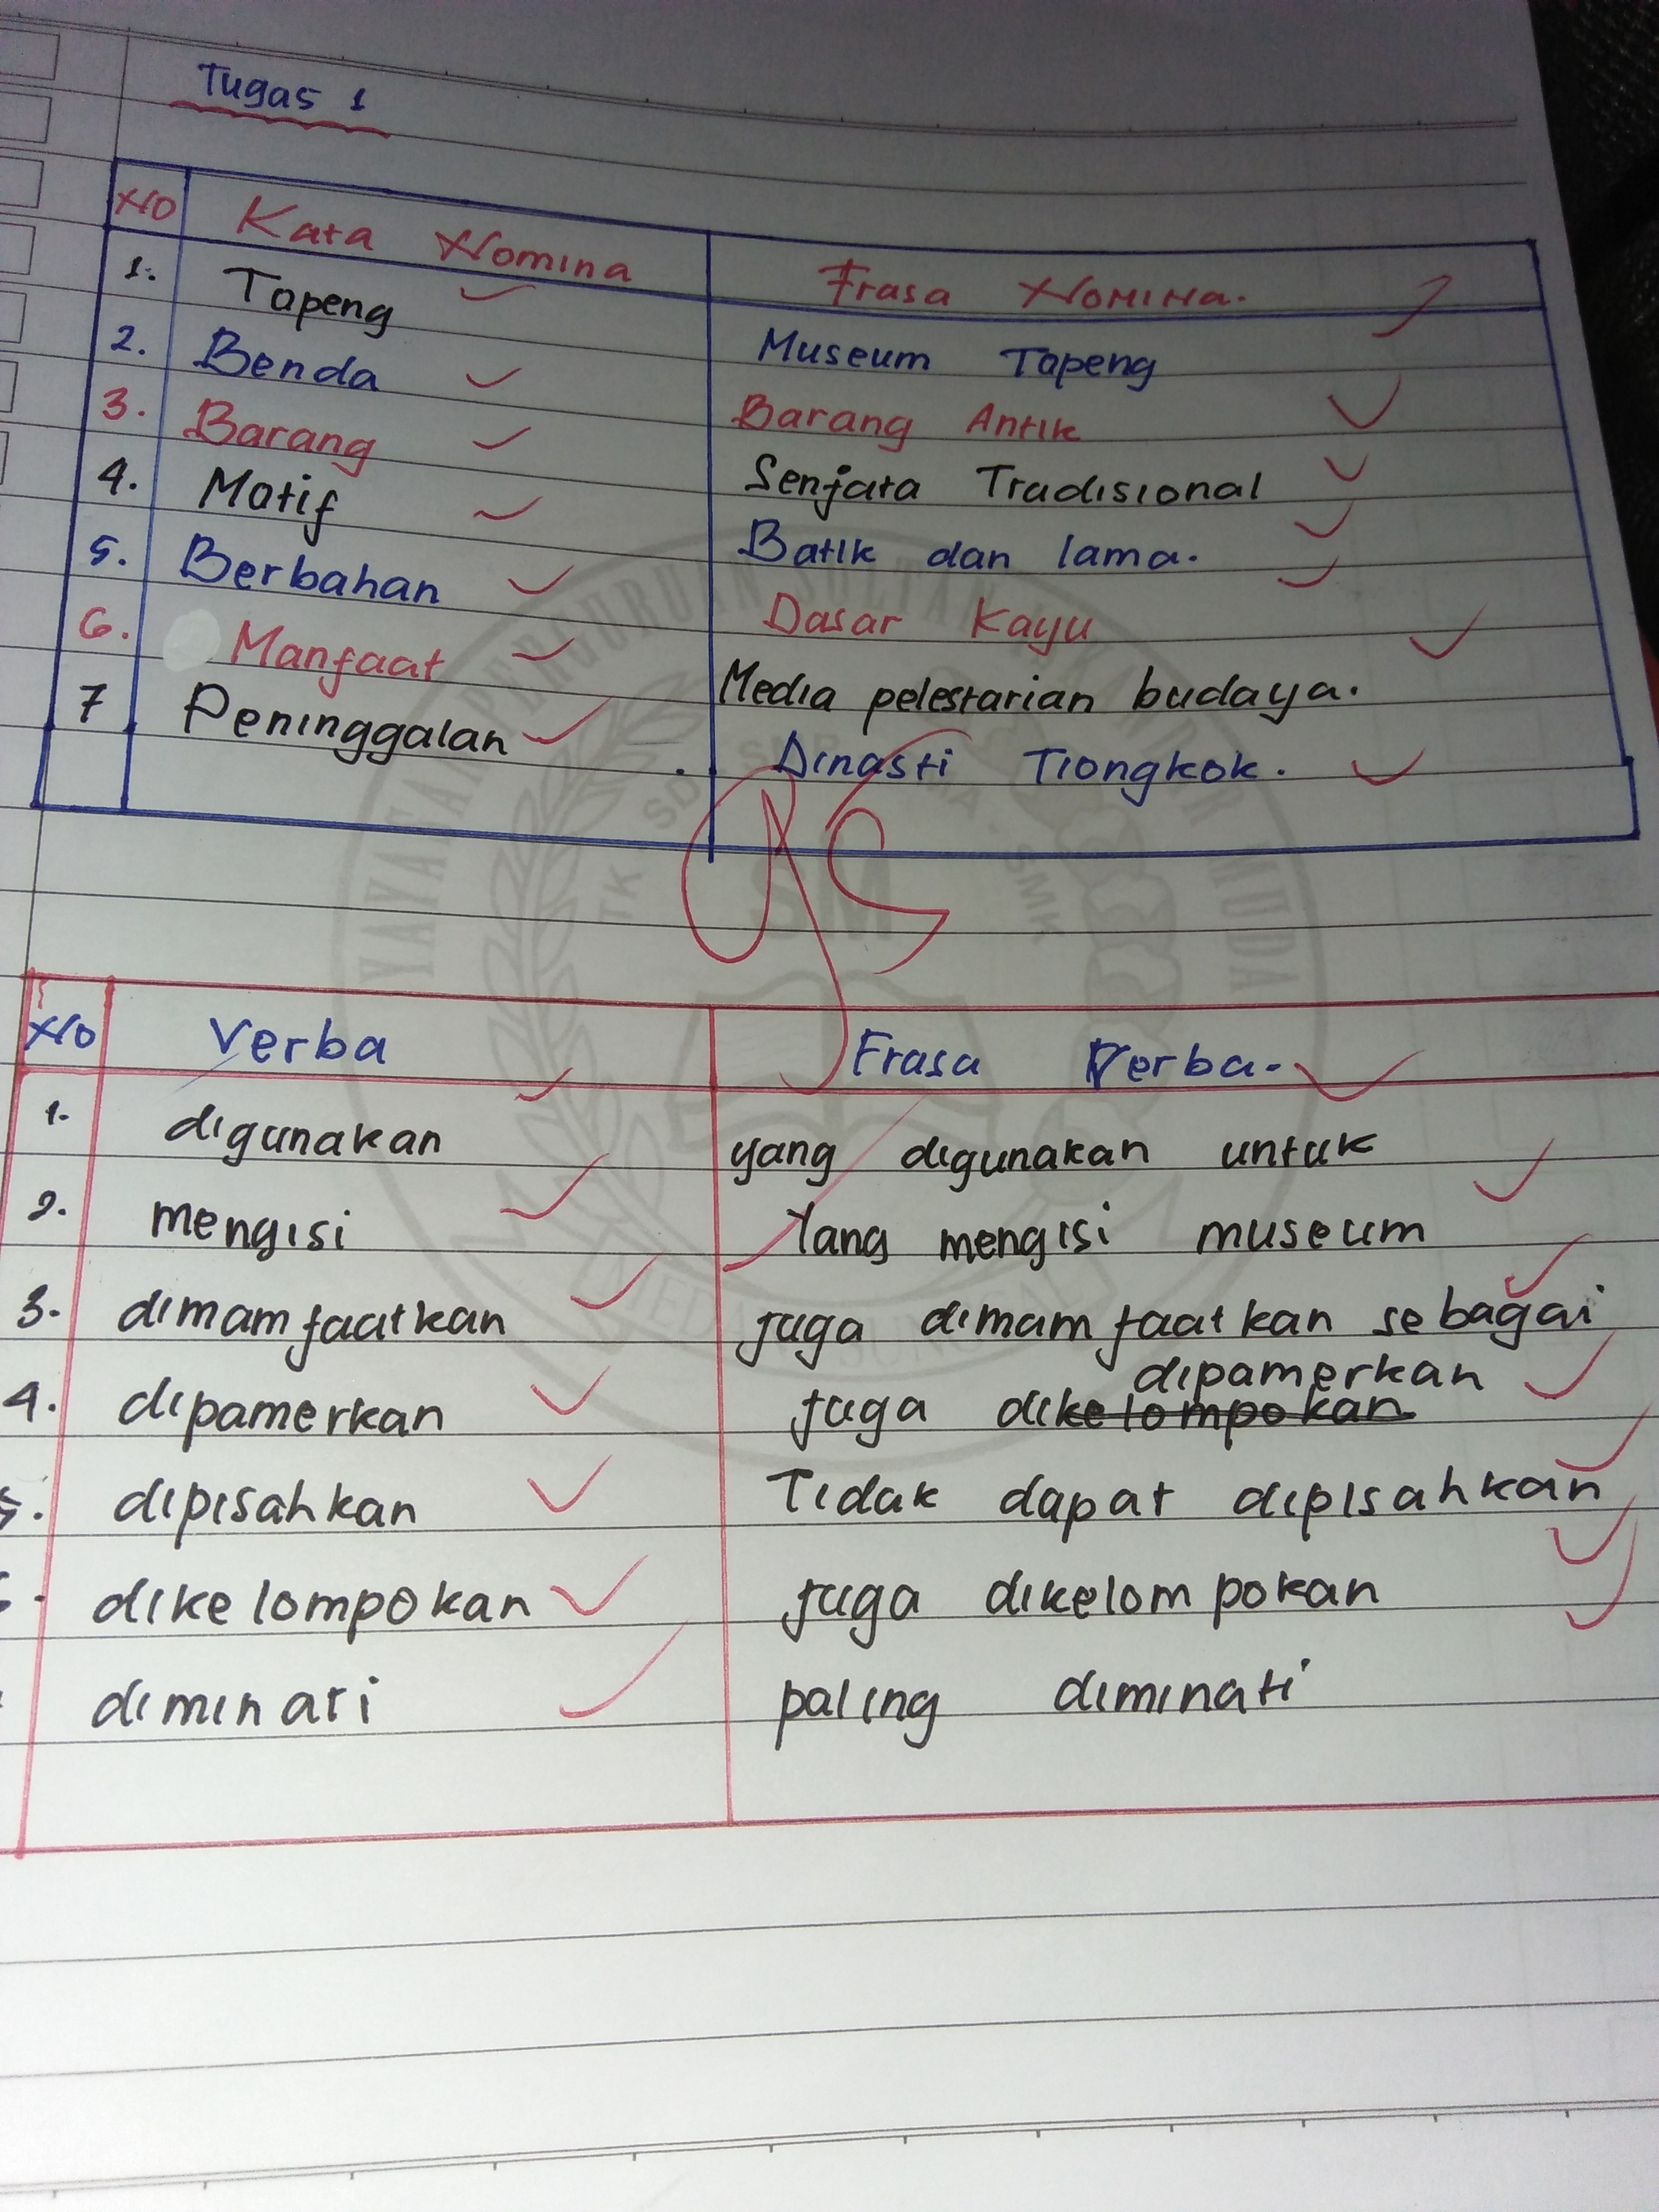 Tugas 1
NO Kata Nomina Frasa Nomina.
1. Topeng Museum Topeng
2. Benda Barang Antik
3. Barang Senjata Tradisional
4. Motif Batik dan lama.
5. Berbahan Dasar Kayu
6. Manfaat Media pelestarian budaya.
7 Peninggalan Dinasti Tiongkok.
YAYASAN PERGURUAN SULTAN ISKANDAR MUDA
SM
No Verba Frasa Verba.
1. digunakan yang digunakan untuk
2. mengisi Yang mengisi museum
3. dimamfaatkan juga dimamfaatkan sebagai
4. dipamerkan juga dikelompokan dipamerkan
5. dipisahkan Tidak dapat dipisahkan
dikelompokan juga dikelompokan
diminati paling diminati